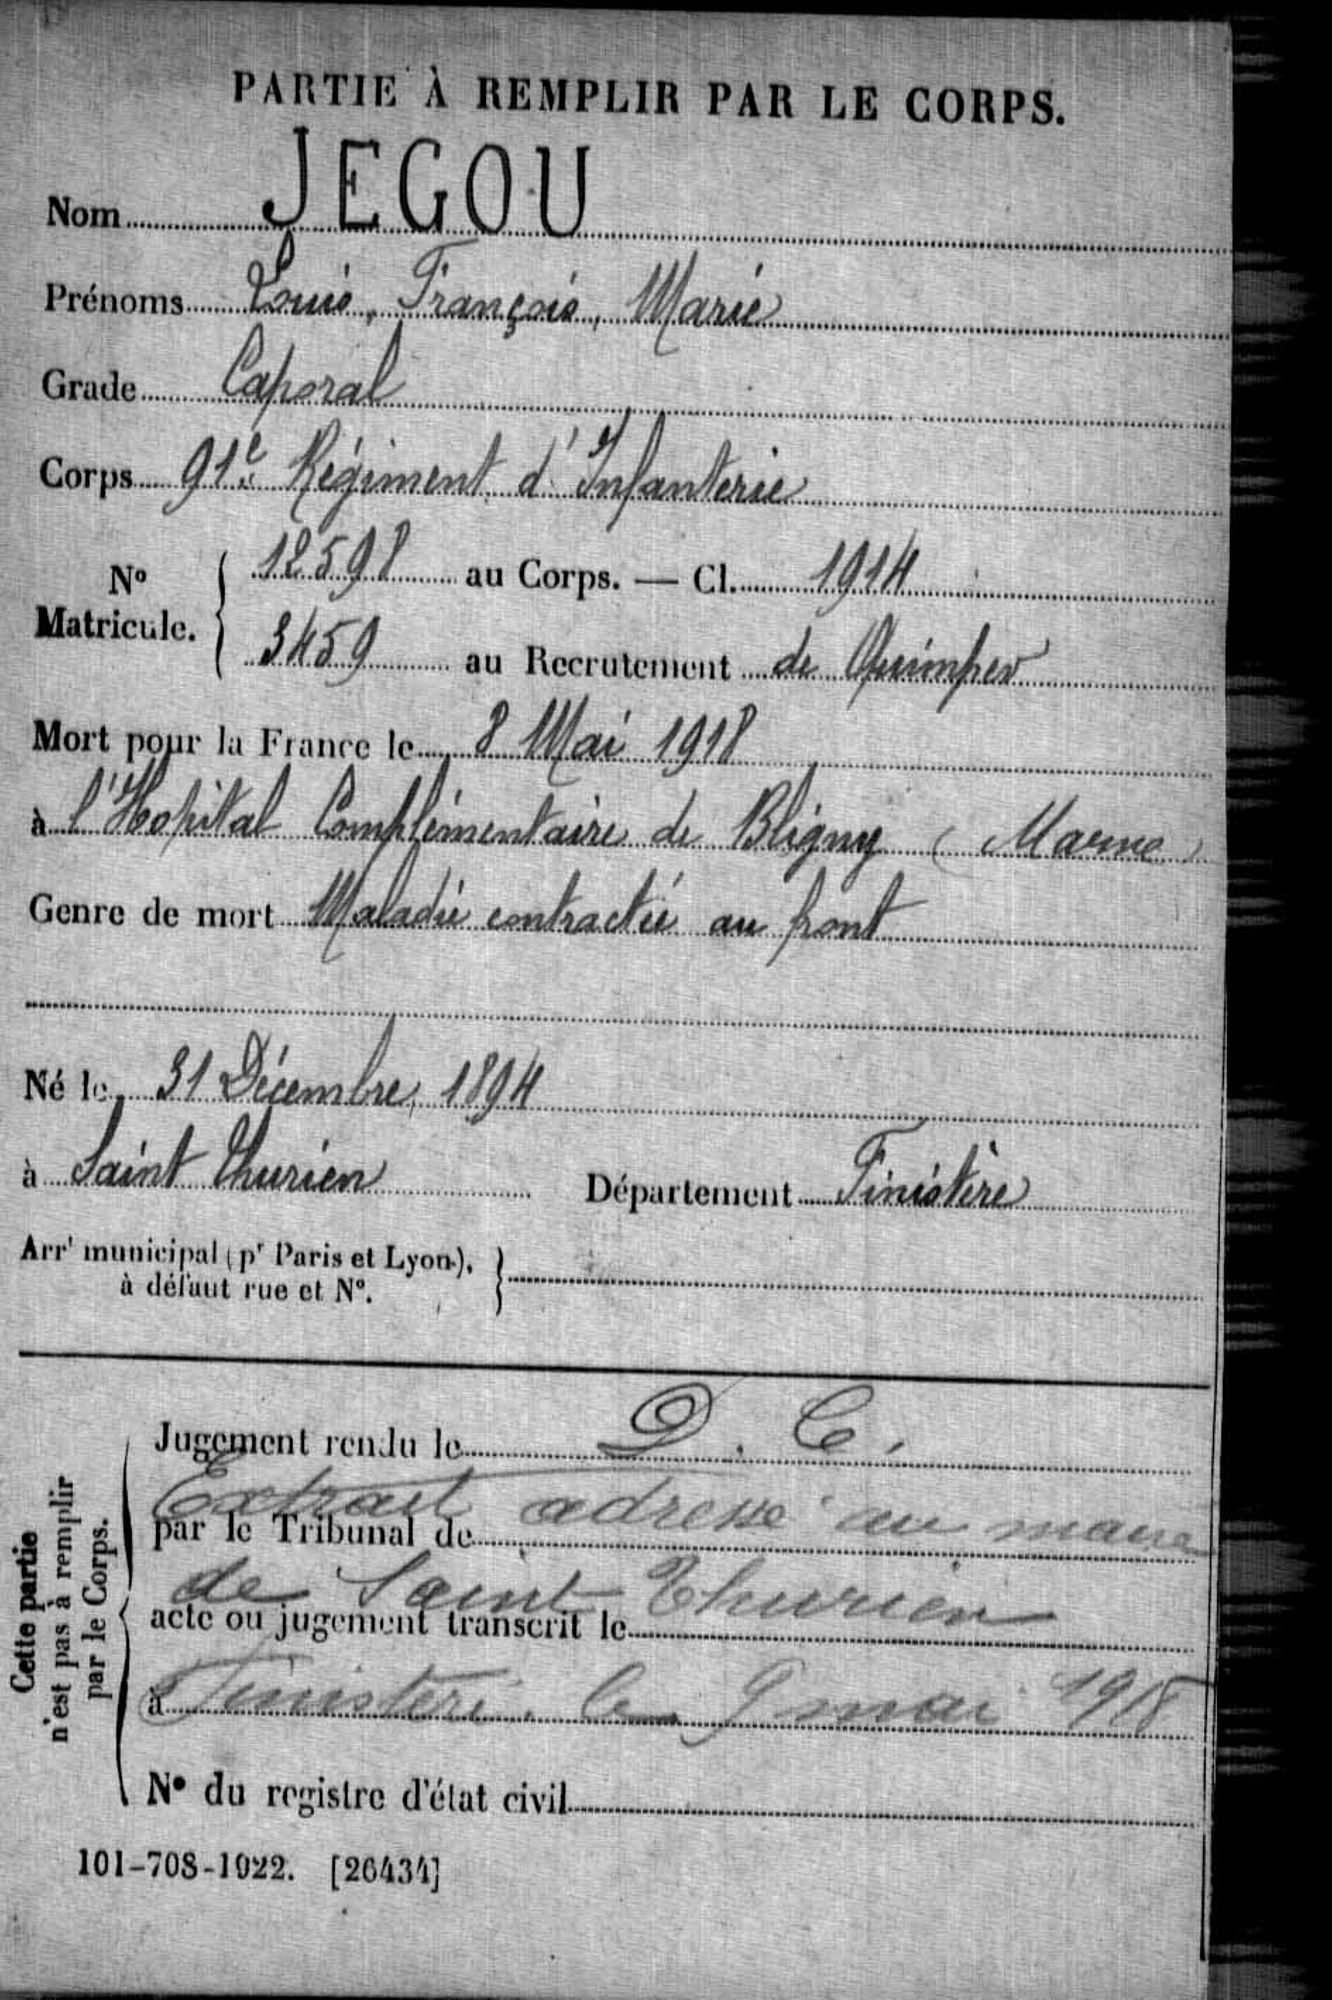 PARTIE À REMPLIR PAR LE CORPS.
Nom JEGOU
Prénoms Louis, François, Marie
Grade Caporal
Corps 91e Régiment d'Infanterie
No Matricule. { 12598 au Corps. — Cl. 1914
3459 au Recrutement de Quimper
Mort pour la France le 8 Mai 1918
à l'Hopital Complémentaire de Bligny (Marne)
Genre de mort Maladie contractée au front
Né le 31 Décembre 1894
à Saint Thurien Département Finistère
Arrt municipal (pr Paris et Lyon), }
à défaut rue et No.
Cette partie
n'est pas à remplir
par le Corps.
Jugement rendu le D. C.
Extrait adressé au maire
par le Tribunal de
de Saint Thurien
acte ou jugement transcrit le
à Finistere. le 9 mai 1918
No du registre d'état civil
101-708-1922. [26434]